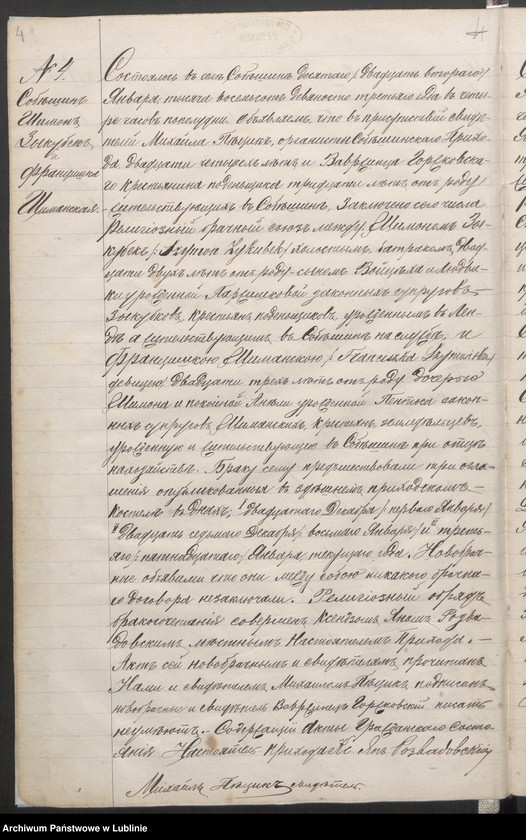 4
№ 4.
Собѣшинъ
Шимонъ
Зыкубекъ
и
Францишка
Шиманская.
Состоялось въ селѣ Собѣшинѣ десятаго / двадцать втораго /
Января тысяча восемьсотъ девяносто третьяго года въ четы-
ре часовъ пополудни. Объявляемъ, что въ присутствіи свидѣ-
телей Михаила Пѣцикъ, органиста Собѣшинскаго прихо-
да двадцати четырехъ лѣтъ и Вавринца Горековска-
го крестьянина поденщика тридцати лѣтъ отъ роду
жительствующихъ въ Собѣшинѣ, заключенъ сего числа
религіозный брачный союзъ между: Шимономъ Зы-
кубекъ / Szymon Zykubek / холостымъ, батракомъ, двад-
цати двухъ лѣтъ отъ роду сыномъ Войцѣха и Людви-
ки урожденной законныхъ супруговъ
Зыкубковъ, крестьянъ поденщиковъ, урожденнымъ въ
а жительствующимъ въ Собѣшинѣ на службѣ, и
Францишкою Шиманскою / Franciszka Szymańska /
девицею двадцати трехъ лѣтъ отъ роду дочерью
Шимона и покойной Анели урожденной Пентека закон-
ныхъ супруговъ Шиманскихъ, крестьянъ земледѣльцевъ,
урожденною и жительствующею въ Собѣшинѣ при отцѣ
на хозяйствѣ. Браку сему предшествовали три огла-
шенія опубликованныя въ здѣшнемъ приходскомъ
костелѣ въ дняхъ: двадцатаго Декабря / перваго Января /
двадцать седьмаго Декабря / восьмаго Января / и треть-
яго / пятнадцатаго / Января текущаго года. Новобрач-
ные объявили что они между собою никакого брачна-
го договора незаключали. Религіозный обрядъ
бракосочетанія совершенъ Ксендзомъ Яномъ Розва-
довскимъ мѣстнымъ Настоятелемъ прихода.
Актъ сей новобрачнымъ и свидѣтелямъ прочитанъ
Нами и свидѣтелемъ Михаиломъ Пѣцикъ подписанъ
новобрачные и свидѣтель Вавринецъ Горековскій писать
неумѣютъ. Содержащій Акты Гражданскаго Состо-
янія Настоятель прихода Кс. Янъ Розвадовскій
Михаилъ Пѣцикъ свидѣтель.
Archiwum Państwowe w Lublinie